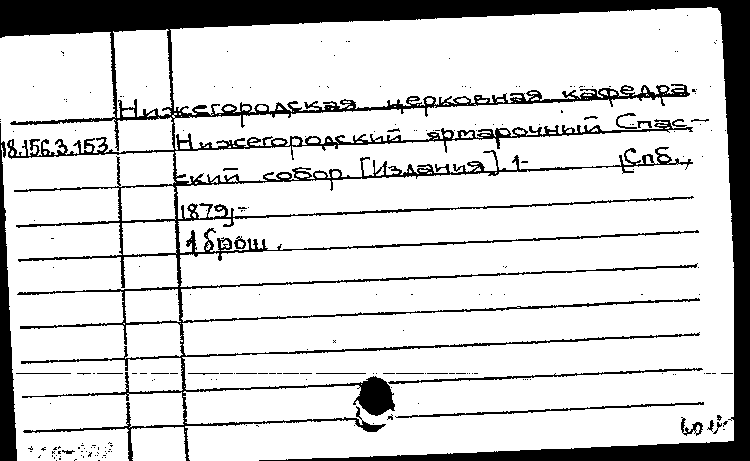 Нижегородская церковная кафедра.
18.156.3.153. Нижегородский ярмарочный Спас-
ский собор. [Издания]. 1- [Спб.,
1879]-
1 брош.